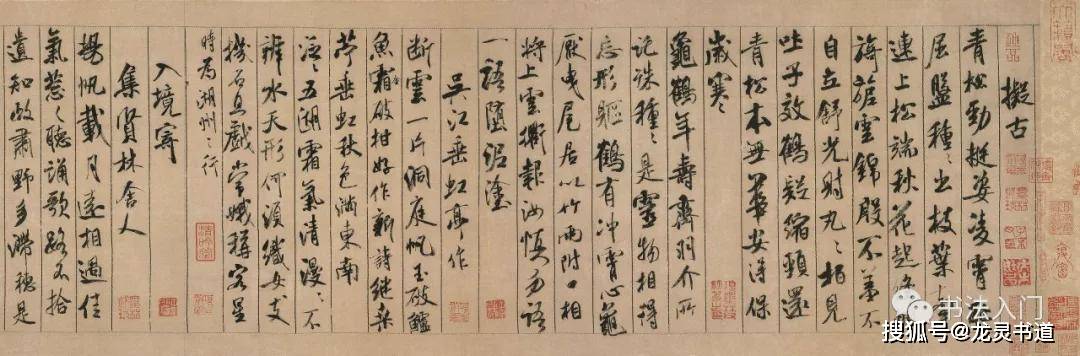 擬古
青松勁挺姿凌霄
屈盤種々出枝葉
連上松端秋花起
旖旎雲錦殷不羞不
自立舒光射丸々柏見
吐子效鶴疑縮頸還
青松本無華安得保
歲寒
龜鶴年壽齊羽介所
託殊種々是靈物相得
忘形軀鶴有冲霄心龜
厭曳尾居以竹兩附口相
將上雲衢報汝慎勿語
一語墮泥塗
吳江垂虹亭作
斷雲一片洞庭帆玉破鱸
魚霜破柑好作新詩繼桑
苧垂虹秋色滿東南
泛五湖霜氣清漫々不
辨水天形何須織女支
機石且戲常娥稱客星
時為湖州之行
入境寄
集賢林舍人
揚帆載月遠相過佳
氣蔥々聽誦歌路不拾
遺知政肅野多滯穗是
书法入门
搜狐号@龙灵书道